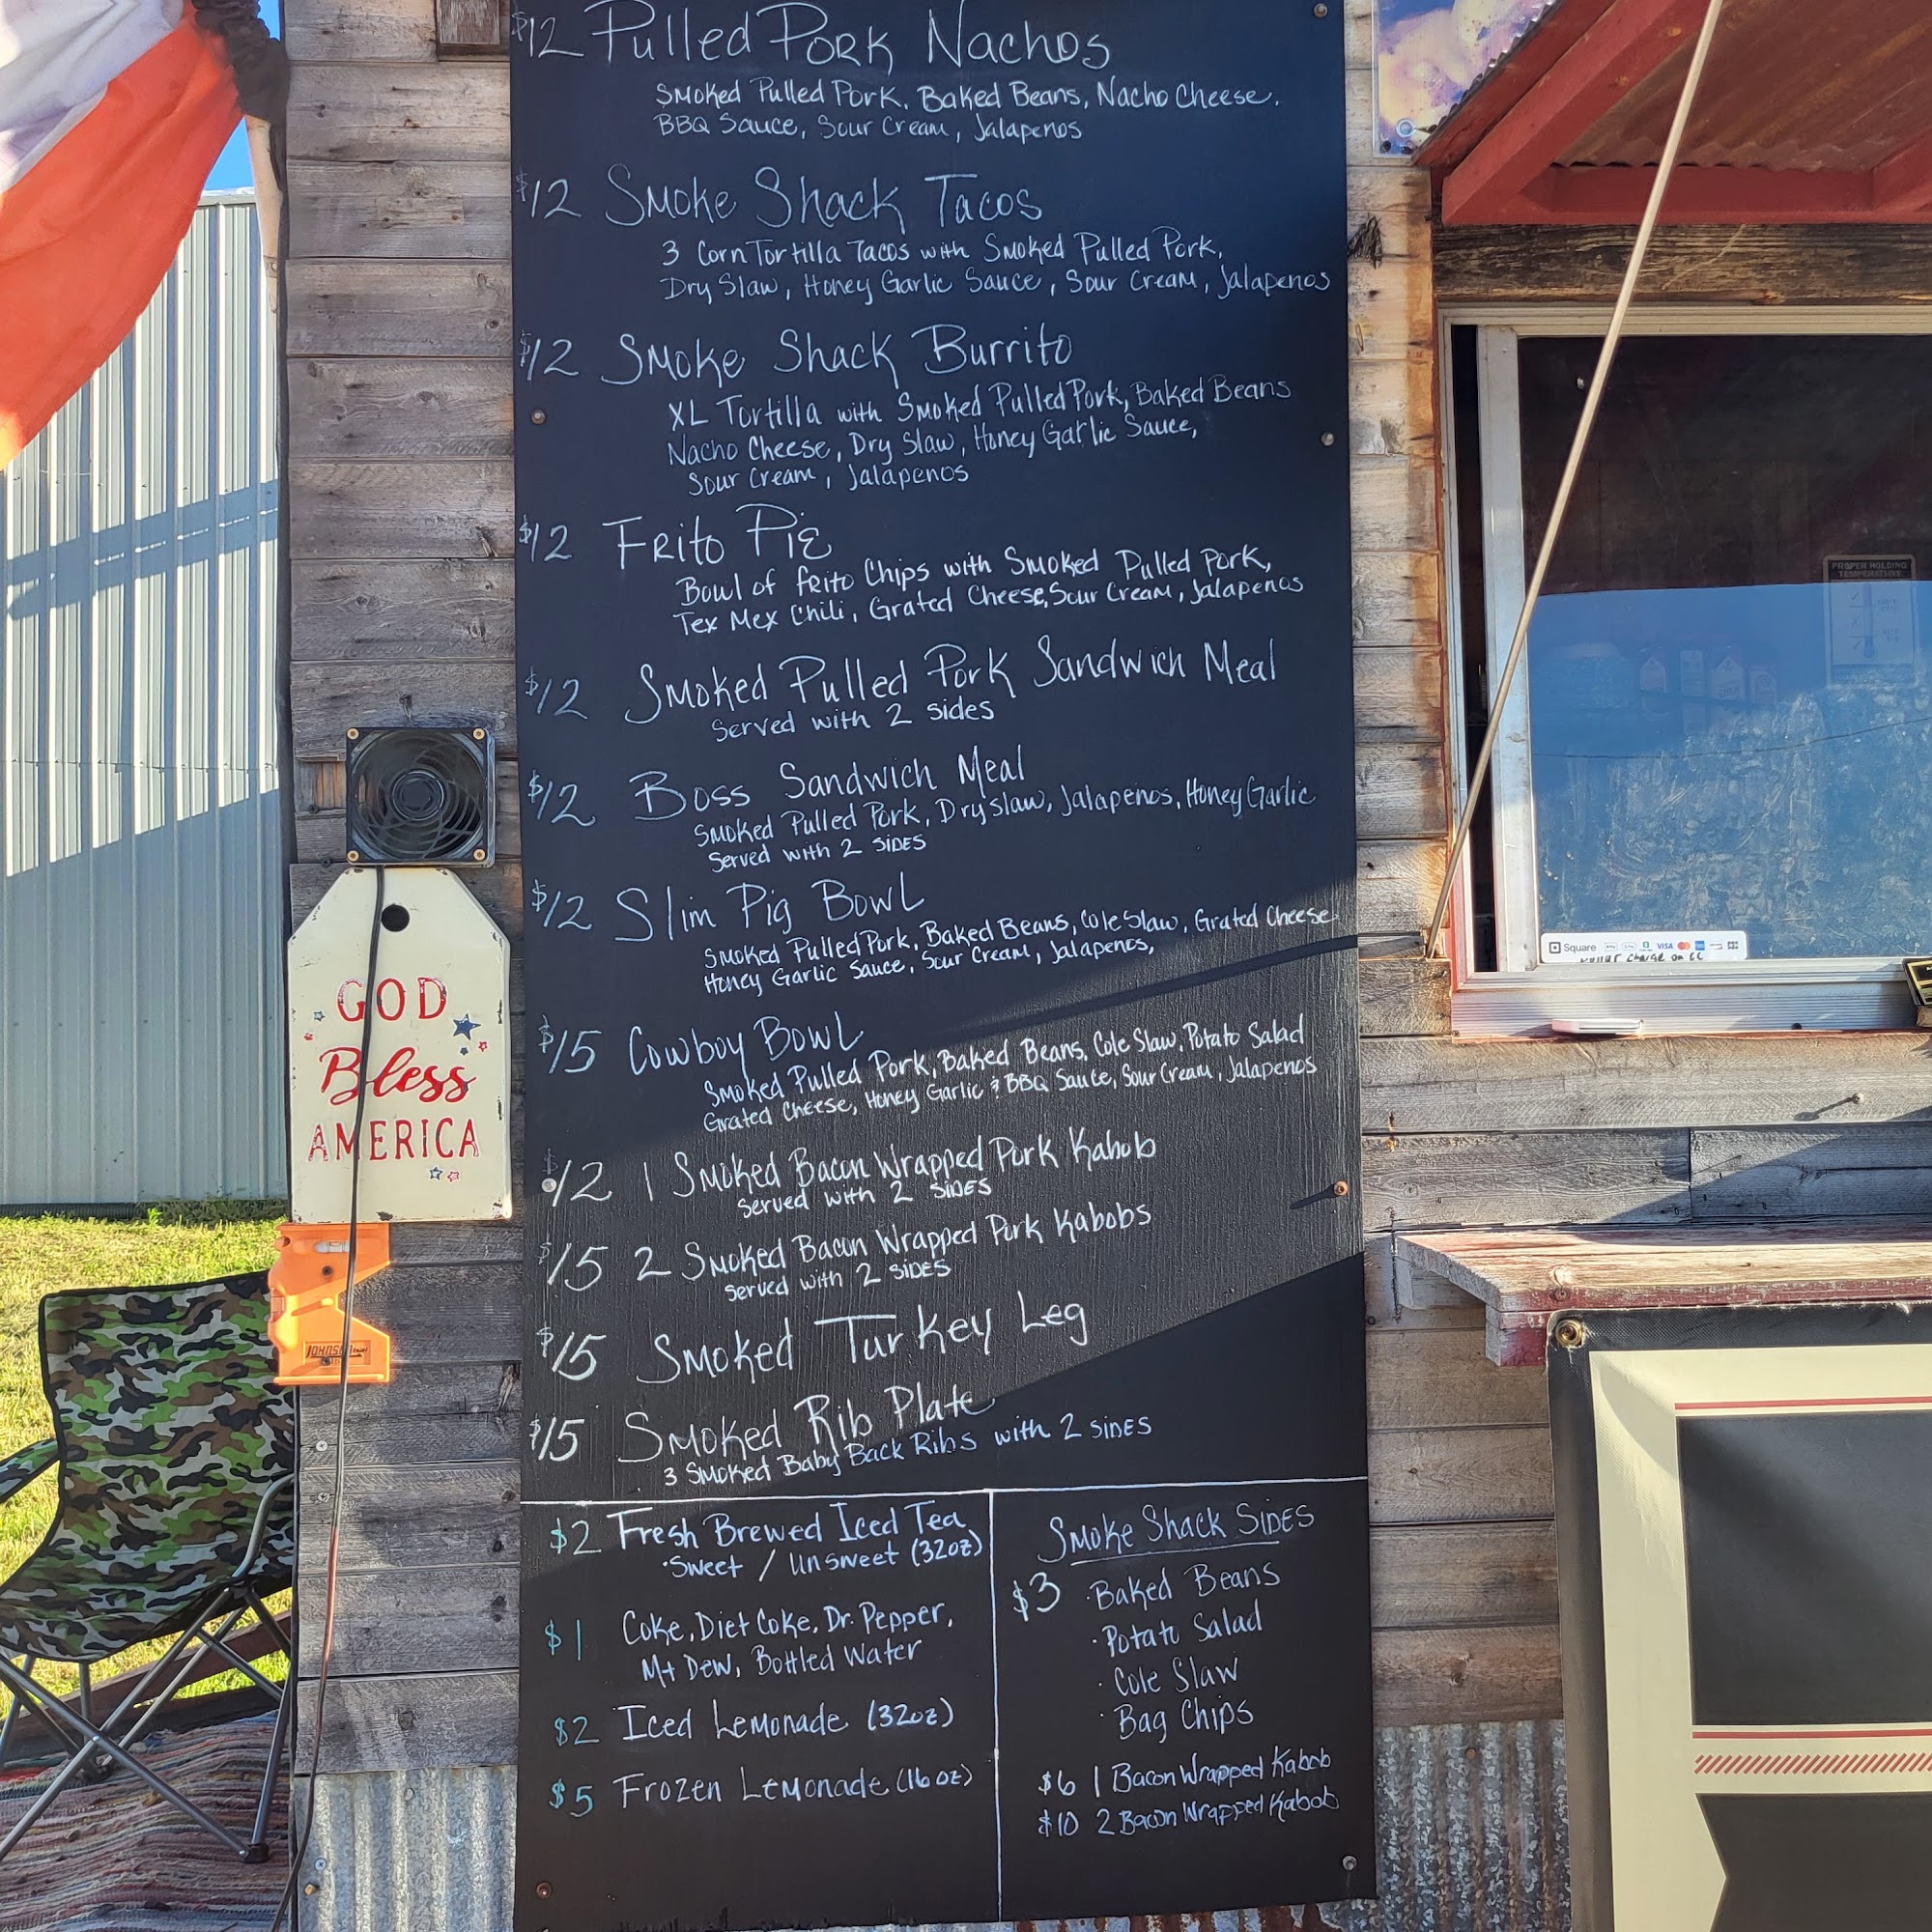 $12 Pulled Pork Nachos
Smoked Pulled Pork, Baked Beans, Nacho Cheese,
BBQ Sauce, Sour Cream, Jalapenos
$12 Smoke Shack Tacos
3 Corn Tortilla Tacos with Smoked Pulled Pork,
Dry Slaw, Honey Garlic Sauce, Sour Cream, Jalapenos
$12 Smoke Shack Burrito
XL Tortilla with Smoked Pulled Pork, Baked Beans
Nacho Cheese, Dry Slaw, Honey Garlic Sauce,
Sour Cream, Jalapenos
$12 Frito Pie
Bowl of Frito Chips with Smoked Pulled Pork,
Tex Mex Chili, Grated Cheese, Sour Cream, Jalapenos
$12 Smoked Pulled Pork Sandwich Meal
Served with 2 sides
$12 Boss Sandwich Meal
Smoked Pulled Pork, Dry Slaw, Jalapenos, Honey Garlic
Served with 2 SIDES
$12 Slim Pig Bowl
Smoked Pulled Pork, Baked Beans, Cole Slaw, Grated Cheese
Honey Garlic Sauce, Sour Cream, Jalapenos,
$15 Cowboy Bowl
Smoked Pulled Pork, Baked Beans, Cole Slaw, Potato Salad
Grated Cheese, Honey Garlic & BBQ Sauce, Sour Cream, Jalapenos
$12 1 Smoked Bacon Wrapped Pork Kabob
Served with 2 SIDES
$15 2 Smoked Bacon Wrapped Pork Kabobs
Served with 2 SIDES
$15 Smoked Turkey Leg
$15 Smoked Rib Plate
3 Smoked Baby Back Ribs with 2 SIDES
$2 Fresh Brewed Iced Tea
·Sweet / Unsweet (32oz)
$1 Coke, Diet Coke, Dr. Pepper,
Mt Dew, Bottled Water
$2 Iced Lemonade (32oz)
$5 Frozen Lemonade (16oz)
Smoke Shack SIDES
$3 ·Baked Beans
·Potato Salad
·Cole Slaw
·Bag Chips
$6 1 Bacon Wrapped Kabob
$10 2 Bacon Wrapped Kabob
GOD
Bless
AMERICA
PROPER HOLDING
TEMPERATURE
Square VISA
charge on CC